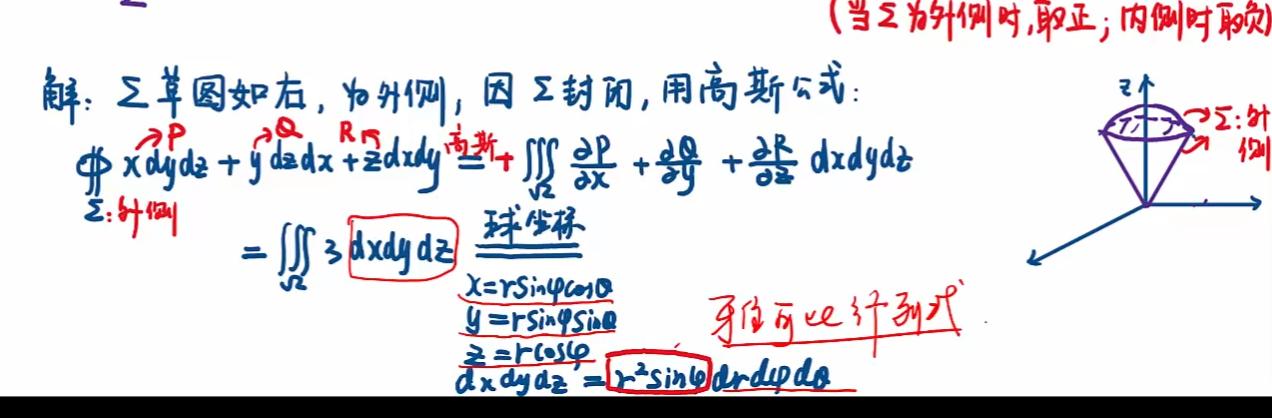 (当Σ为外侧时,取正;内侧时取负)
解:Σ草图如右,为外侧,因Σ封闭,用高斯公式:
P Q R
∯ xdydz + ydzdx + zdxdy 高斯 = + ∭ ∂P/∂x + ∂Q/∂y + ∂R/∂z dxdydz
Σ:外侧 Ω
= ∭ 3 dxdydz 球坐标
Ω
x=rsinφcosθ
y=rsinφsinθ
z=rcosφ
dxdydz = r²sinφdrdφdθ
行列式
z
Σ:外侧